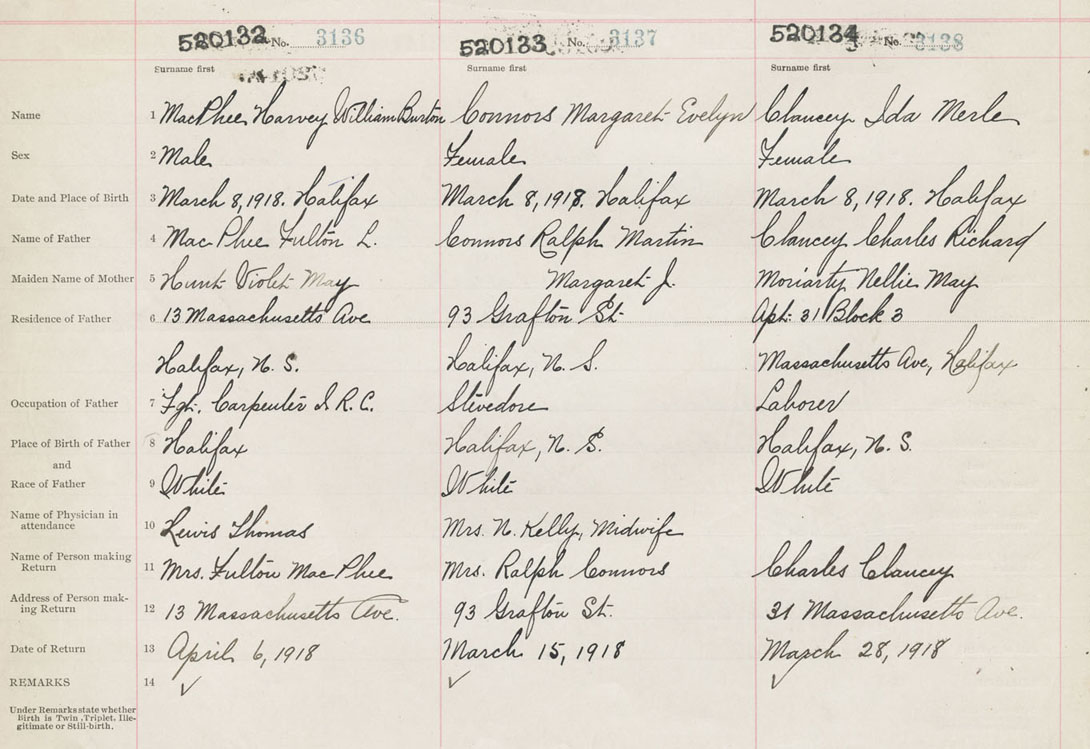 520132 No. 3136 520133 No. 3137 520134 No. 3138
Surname first Surname first Surname first
Name 1 MacPhee Harvey William Burton Connors Margaret Evelyn Clancey Ida Merle
Sex 2 Male Female Female
Date and Place of Birth 3 March 8, 1918. Halifax March 8, 1918. Halifax March 8, 1918. Halifax
Name of Father 4 MacPhee Fulton L. Connors Ralph Martin Clancey Charles Richard
Maiden Name of Mother 5 Hunt Violet May Margaret J. Moriarty Nellie May
Residence of Father 6 13 Massachusetts Ave 93 Grafton St. Apt. 31 Block 3
Halifax, N. S. Halifax, N. S. Massachusetts Ave, Halifax
Occupation of Father 7 Carpenter R.C. Stevedore Laborer
Place of Birth of Father 8 Halifax Halifax, N. S. Halifax, N. S.
and
Race of Father 9 White White White
Name of Physician in
attendance 10 Lewis Thomas Mrs. N. Kelly, Midwife
Name of Person making
Return 11 Mrs. Fulton MacPhee Mrs. Ralph Connors Charles Clancey
Address of Person mak-
ing Return 12 13 Massachusetts Ave. 93 Grafton St. 31 Massachusetts Ave.
Date of Return 13 April 6, 1918 March 15, 1918 March 28, 1918
REMARKS 14 ✓ ✓ ✓
Under Remarks state whether
Birth is Twin, Triplet, Ille-
gitimate or Still-birth.